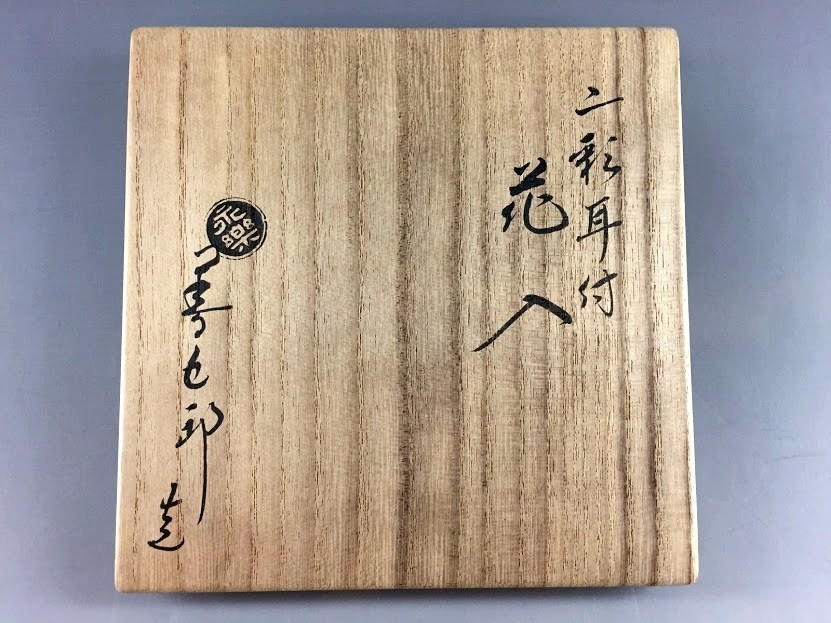 二彩耳付
花入
永樂
善五郎
造